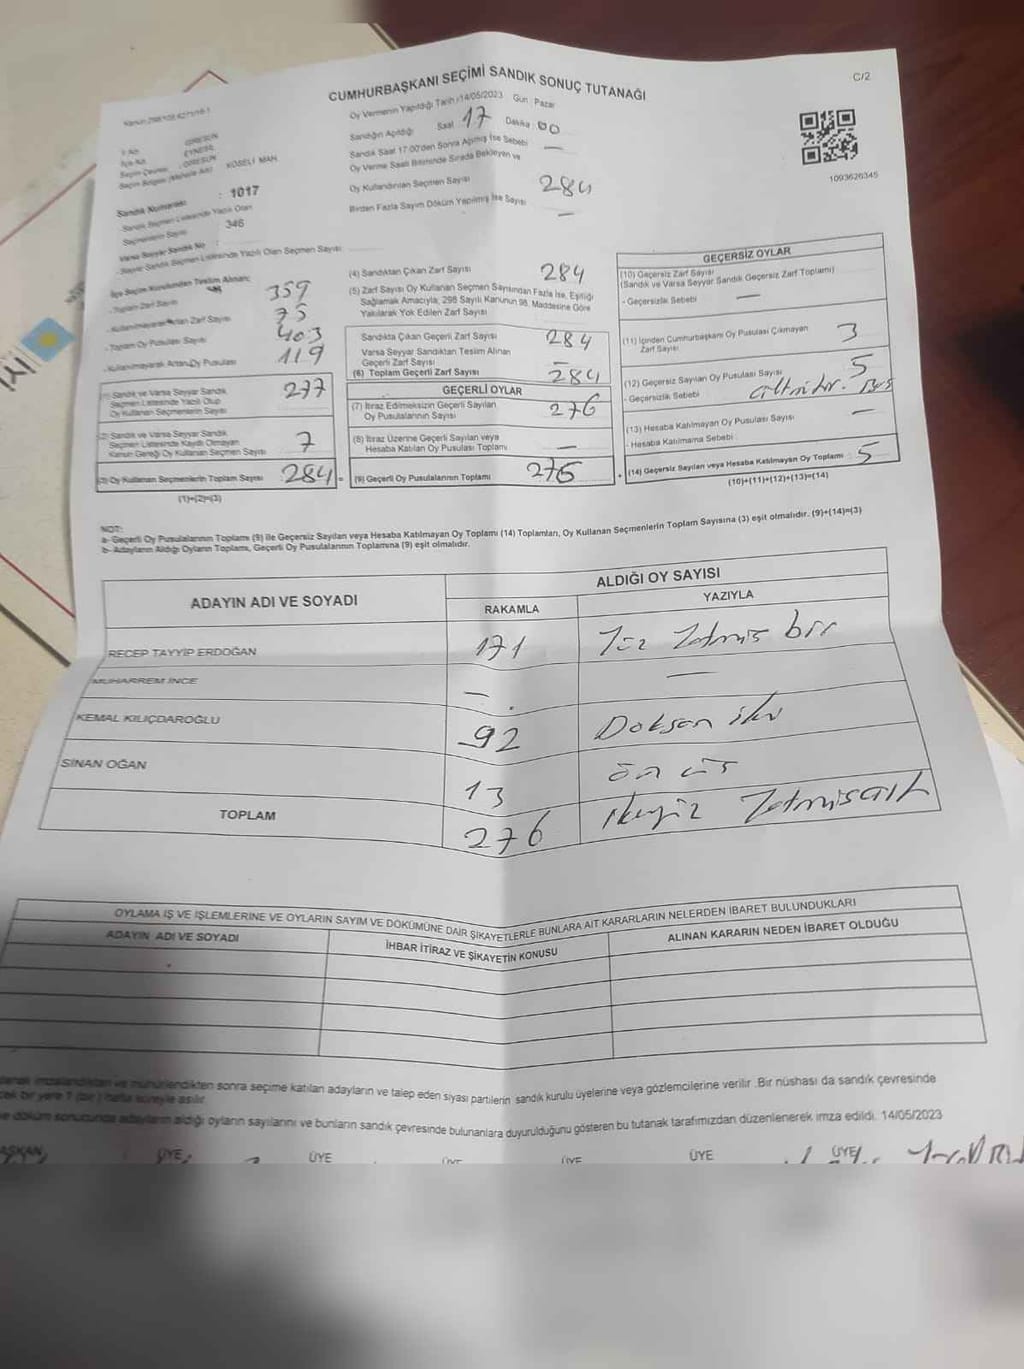 CUMHURBAŞKANI SEÇİMİ SANDIK SONUÇ TUTANAĞI
C/2
Oy Vermenin Yapıldığı Tarih :14/05/2023 Gün : Pazar
Sandığın Açıldığı Saat : 17 Dakika : 00
Sandık Saat 17:00'den Sonra Açılmış İse Sebebi —
Oy Verme Saati Bitiminde Sırada Bekleyen ve
Oy Kullandırılan Seçmen Sayısı 284
Birden Fazla Sayım Döküm Yapılmış İse Sayısı —
1093626345
İl Adı : GİRESUN
İlçe Adı : EYNESİL
Seçim Çevresi : GİRESUN
KÖSELİ MAH.
Sandık Numarası : 1017
Sandık Seçmen Listesinde Yazılı Olan
Seçmenlerin Sayısı 346
Varsa Seyyar Sandık No :
Seyyar Sandık Seçmen Listesinde Yazılı Olan Seçmen Sayısı
İlçe Seçim Kurulundan Teslim Alınan;
- Toplam Zarf Sayısı 359
- Kullanılmayarak Artan Zarf Sayısı 75
- Toplam Oy Pusulası Sayısı 403
- Kullanılmayarak Artan Oy Pusulası 119
(1) Sandık ve Varsa Seyyar Sandık
Seçmen Listesinde Yazılı Olup
Oy Kullanan Seçmenlerin Sayısı 277
(2) Sandık ve Varsa Seyyar Sandık
Seçmen Listesinde Kaydı Olmayan
Kanun Gereği Oy Kullanan Seçmen Sayısı 7
(3) Oy Kullanan Seçmenlerin Toplam Sayısı 284 =
(1)+(2)=(3)
(4) Sandıktan Çıkan Zarf Sayısı 284
(5) Zarf Sayısı Oy Kullanan Seçmen Sayısından Fazla İse, Eşitliği
Sağlamak Amacıyla, 298 Sayılı Kanunun 98. Maddesine Göre
Yakılarak Yok Edilen Zarf Sayısı
Sandıkta Çıkan Geçerli Zarf Sayısı 284
Varsa Seyyar Sandıktan Teslim Alınan
Geçerli Zarf Sayısı —
(6) Toplam Geçerli Zarf Sayısı 284
GEÇERLİ OYLAR
(7) İtiraz Edilmeksizin Geçerli Sayılan
Oy Pusulalarının Sayısı 276
(8) İtiraz Üzerine Geçerli Sayılan veya
Hesaba Katılan Oy Pusulası Toplamı —
(9) Geçerli Oy Pusulalarının Toplamı 276 +
GEÇERSİZ OYLAR
(10) Geçersiz Zarf Sayısı
(Sandık ve Varsa Seyyar Sandık Geçersiz Zarf Toplamı)
- Geçersizlik Sebebi —
(11) İçinden Cumhurbaşkanı Oy Pusulası Çıkmayan
Zarf Sayısı 3
(12) Geçersiz Sayılan Oy Pusulası Sayısı 5
- Geçersizlik Sebebi
(13) Hesaba Katılmayan Oy Pusulası Sayısı —
- Hesaba Katılmama Sebebi :
(14) Geçersiz Sayılan veya Hesaba Katılmayan Oy Toplamı 5
(10)+(11)+(12)+(13)=(14)
NOT:
a- Geçerli Oy Pusulalarının Toplamı (9) ile Geçersiz Sayılan veya Hesaba Katılmayan Oy Toplamı (14) Toplamları, Oy Kullanan Seçmenlerin Toplam Sayısına (3) eşit olmalıdır. (9)+(14)=(3)
b- Adayların Aldığı Oyların Toplamı, Geçerli Oy Pusulalarının Toplamına (9) eşit olmalıdır.
ADAYIN ADI VE SOYADI
ALDIĞI OY SAYISI
RAKAMLA YAZIYLA
RECEP TAYYİP ERDOĞAN 171 Yüz Yetmiş bir
MUHARREM İNCE — —
KEMAL KILIÇDAROĞLU 92 Doksan iki
SİNAN OĞAN 13 ön üç
TOPLAM 276 ikiyüz Yetmişaltı
OYLAMA İŞ VE İŞLEMLERİNE VE OYLARIN SAYIM VE DÖKÜMÜNE DAİR ŞİKAYETLERLE BUNLARA AİT KARARLARIN NELERDEN İBARET BULUNDUKLARI
ADAYIN ADI VE SOYADI İHBAR İTİRAZ VE ŞİKAYETİN KONUSU ALINAN KARARIN NEDEN İBARET OLDUĞU
imzalandıktan ve mühürlendikten sonra seçime katılan adayların ve talep eden siyasi partilerin sandık kurulu üyelerine veya gözlemcilerine verilir. Bir nüshası da sandık çevresinde
bir yere 1 (bir) hafta süreyle asılır.
ve döküm sonucunda adayların aldığı oyların sayılarını ve bunların sandık çevresinde bulunanlara duyurulduğunu gösteren bu tutanak tarafımızdan düzenlenerek imza edildi. 14/05/2023
BAŞKAN ÜYE ÜYE ÜYE ÜYE ÜYE ÜYE